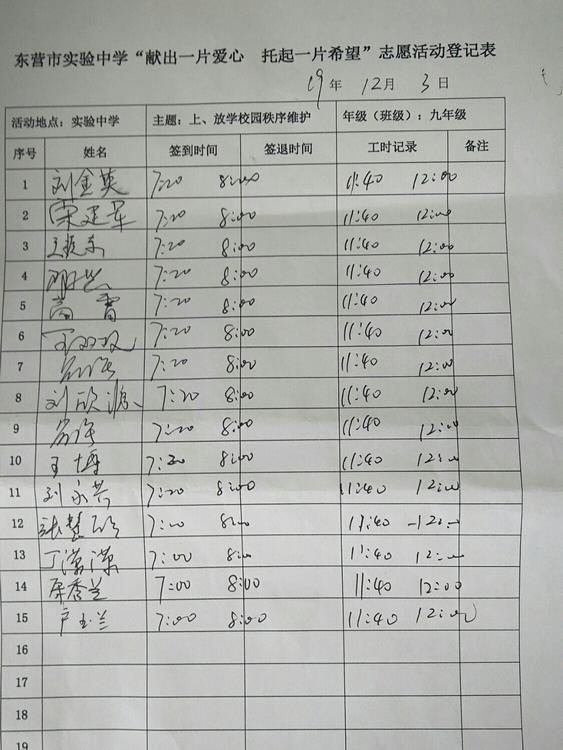 东营市实验中学“献出一片爱心 托起一片希望”志愿活动登记表
19年 12月 3日
活动地点：实验中学 主题：上、放学校园秩序维护 年级（班级）：九年级
序号 姓名 签到时间 签退时间 工时记录 备注
1 刘金英 7:20 8:00 11:40 12:00
2 宋建军 7:20 8:00 11:40 12:00
3 7:20 8:00 11:40 12:00
4 7:20 8:00 11:40 12:00
5 高雪 7:20 8:00 11:40 12:00
6 王双双 7:20 8:00 11:40 12:00
7 7:20 8:00 11:40 12:00
8 刘欣源 7:20 8:00 11:40 12:00
9 7:20 8:00 11:40 12:00
10 王博 7:20 8:00 11:40 12:00
11 刘永芸 7:20 8:00 11:40 12:00
12 11:40 -12:00
13 丁潇潇 7:00 8:00 11:40 12:00
14 7:00 8:00 11:40 12:00
15 卢玉兰 7:00 8:00 11:40 12:00
16
17
18
19